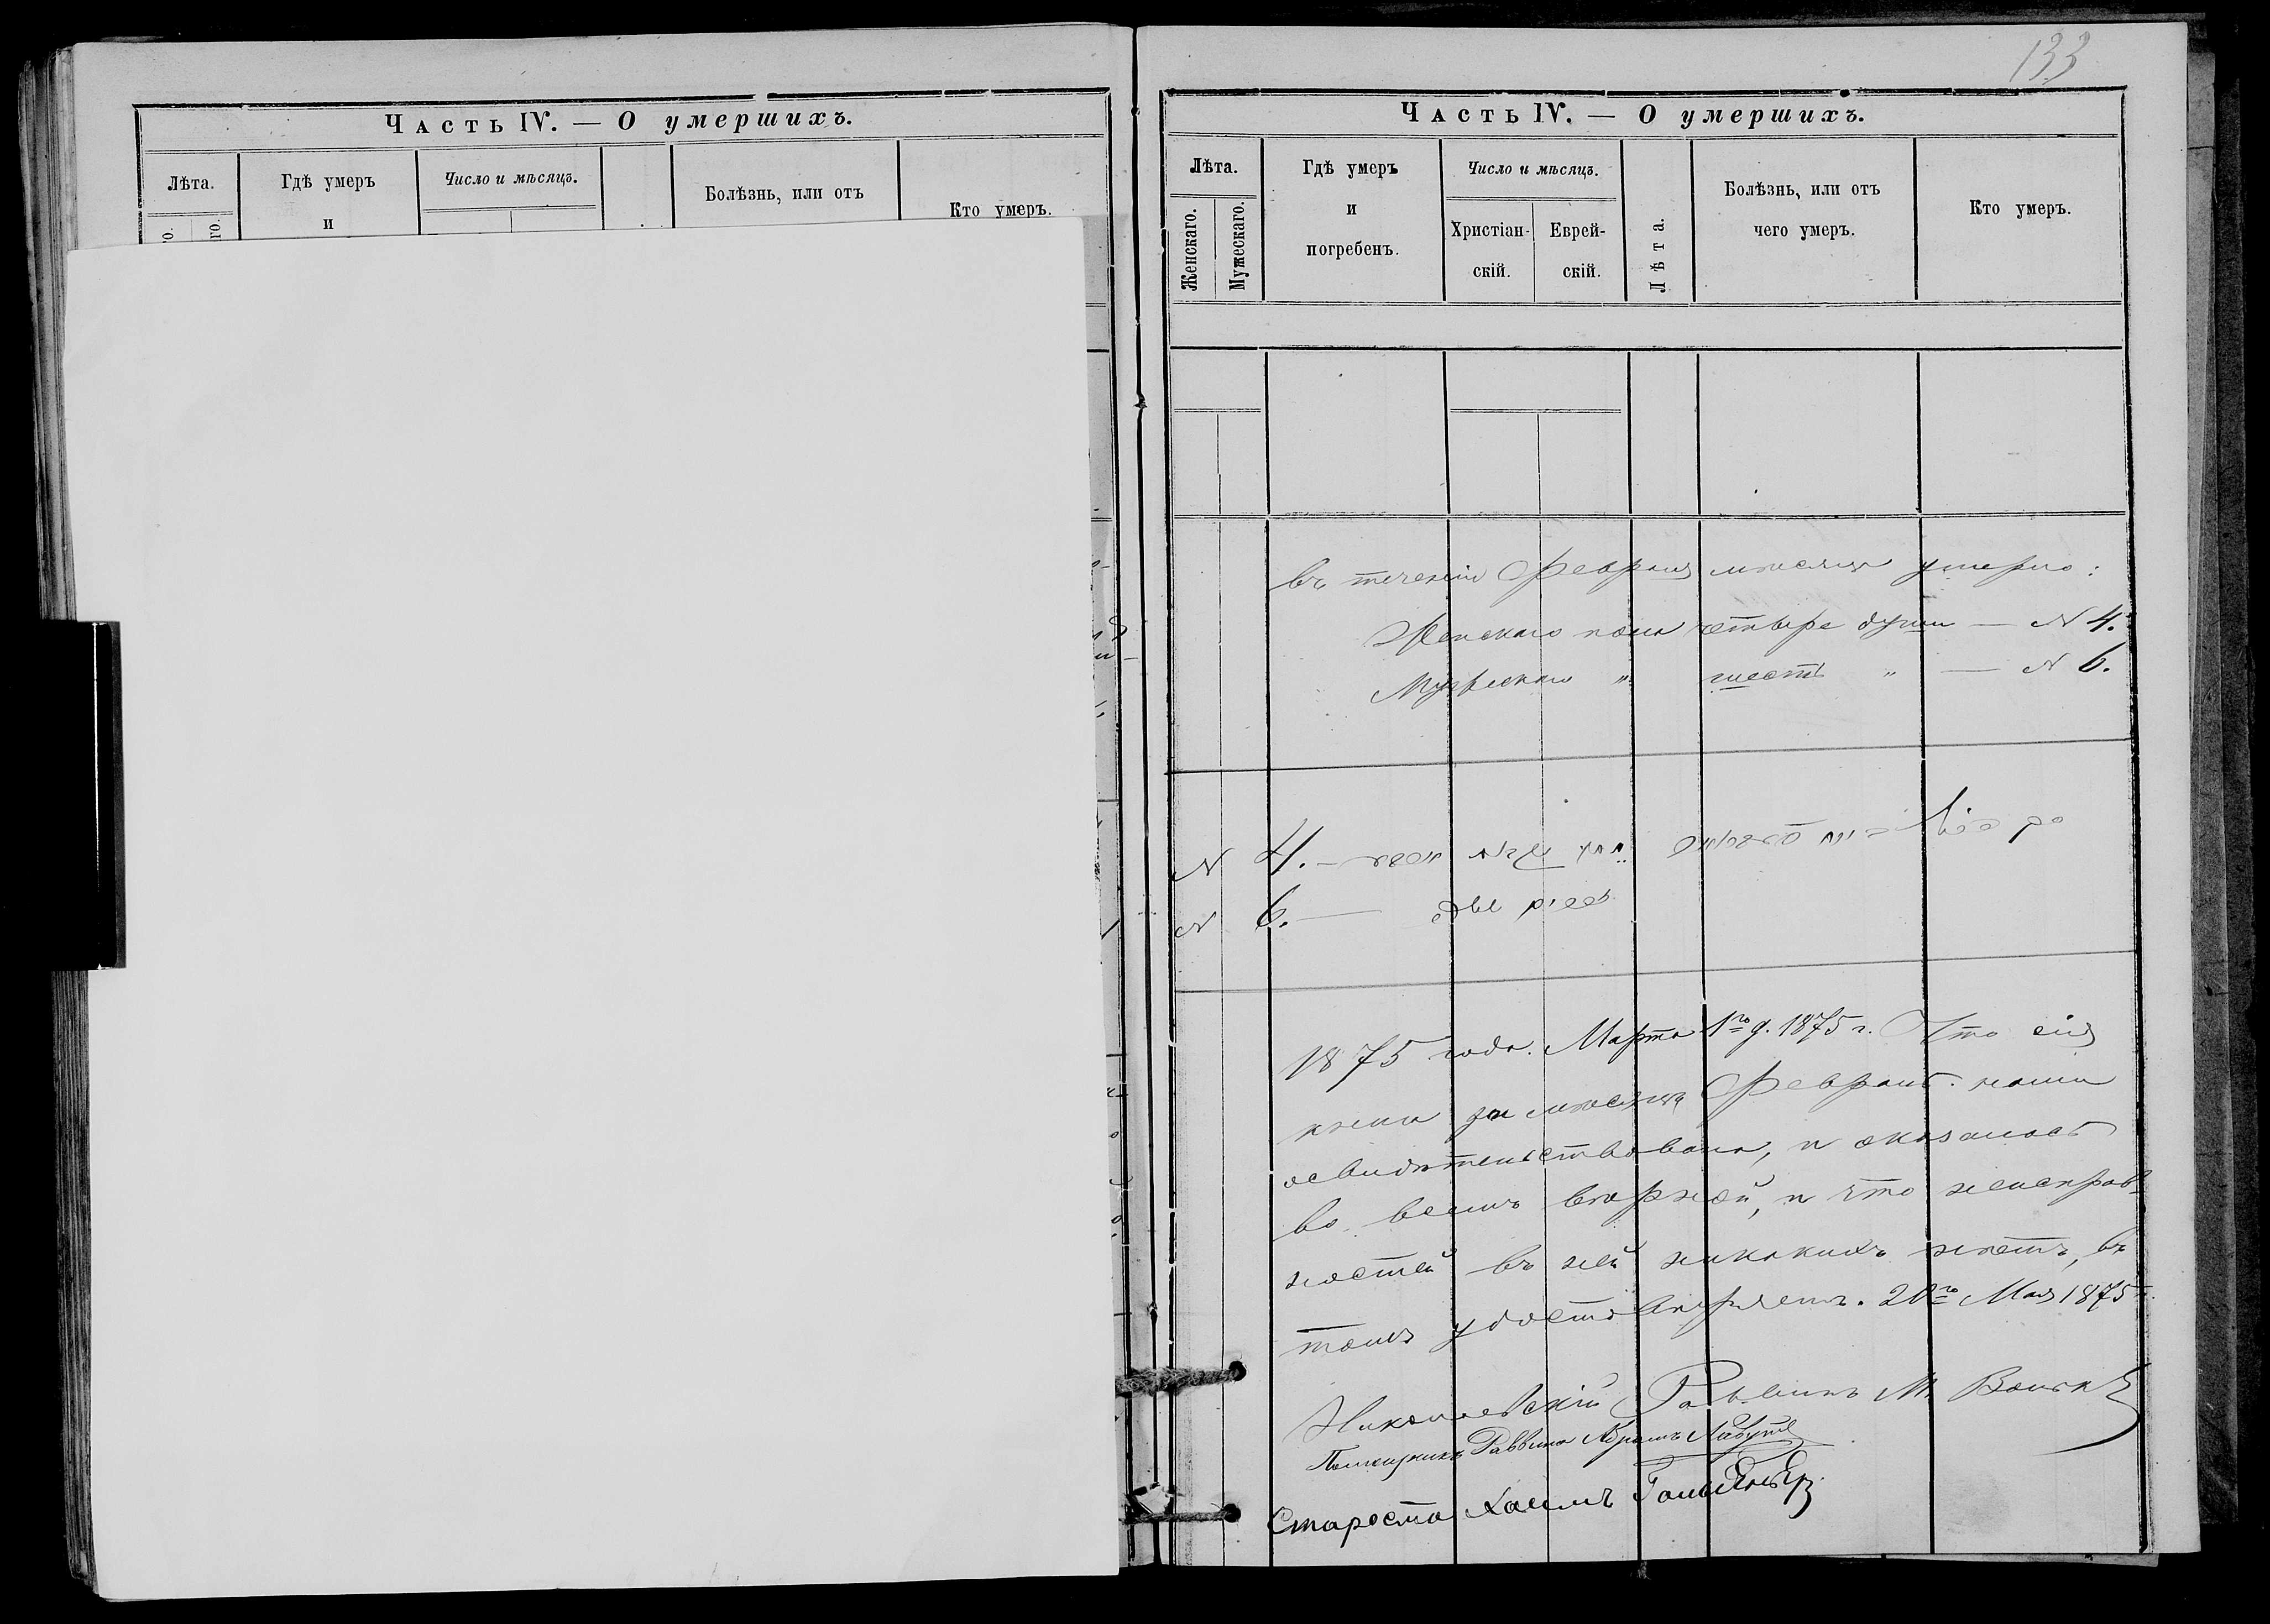 Часть IV. — О умершихъ.
Лѣта.
Гдѣ умеръ
и
Число и мѣсяцъ.
Болѣзнь, или отъ
Кто умеръ.
133
Часть IV. — О умершихъ.
Лѣта.
Женскаго.
Мужескаго.
Гдѣ умеръ
и
погребенъ.
Число и мѣсяцъ.
Христіан-
скій.
Еврей-
скій.
Лѣта.
Болѣзнь, или отъ
чего умеръ.
Кто умеръ.
въ теченіи Февраля мѣсяца умерло:
Женскаго пола четыре души — N 4.
Мужескаго " шесть " — N 6.
N 4. —
N 6. —
1875 года. Марта 1го д. 1875 г. Что сія
книга за мѣсяцъ Февраль нами
освидѣтельствована, и оказалась
во всемъ вѣрной, и что неисправ-
ностей въ ней никакихъ нѣтъ, въ
томъ удостовѣряемъ. 20го Мая 1875
Николаевскій Раввинъ М.
Помощникъ Раввина Абрамъ
Староста Хаимъ